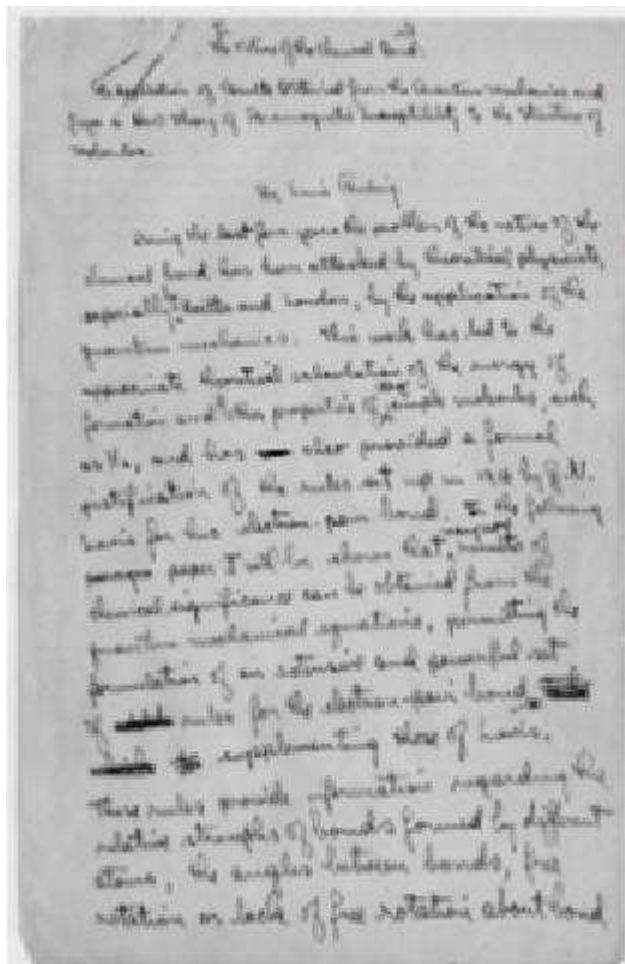 The Nature of the Chemical Bond.
Application of Results Obtained from the Quantum Mechanics and
from a New Theory of Paramagnetic Susceptibility to the Structure of
Molecules.
By Linus Pauling
During the last few years the problem of the nature of the
chemical bond has been attacked by theoretical physicists,
especially Heitler and London, by the application of the
quantum mechanics. This work has led to the
approximate theoretical calculation of the energy of
formation and other properties of very simple molecules, such
as H₂, and has also provided a formal
justification of the rules set up in 1916 by G. N.
Lewis for his electron-pair bond. In the following
paper it will be shown that many more results of
chemical significance can be obtained from the
quantum mechanical equations, permitting the
formulation of an extensive and powerful set
of rules for the electron-pair bond
supplementing those of Lewis.
These rules provide information regarding the
relative strengths of bonds formed by different
atoms, the angles between bonds, free
rotation or lack of free rotation about bond